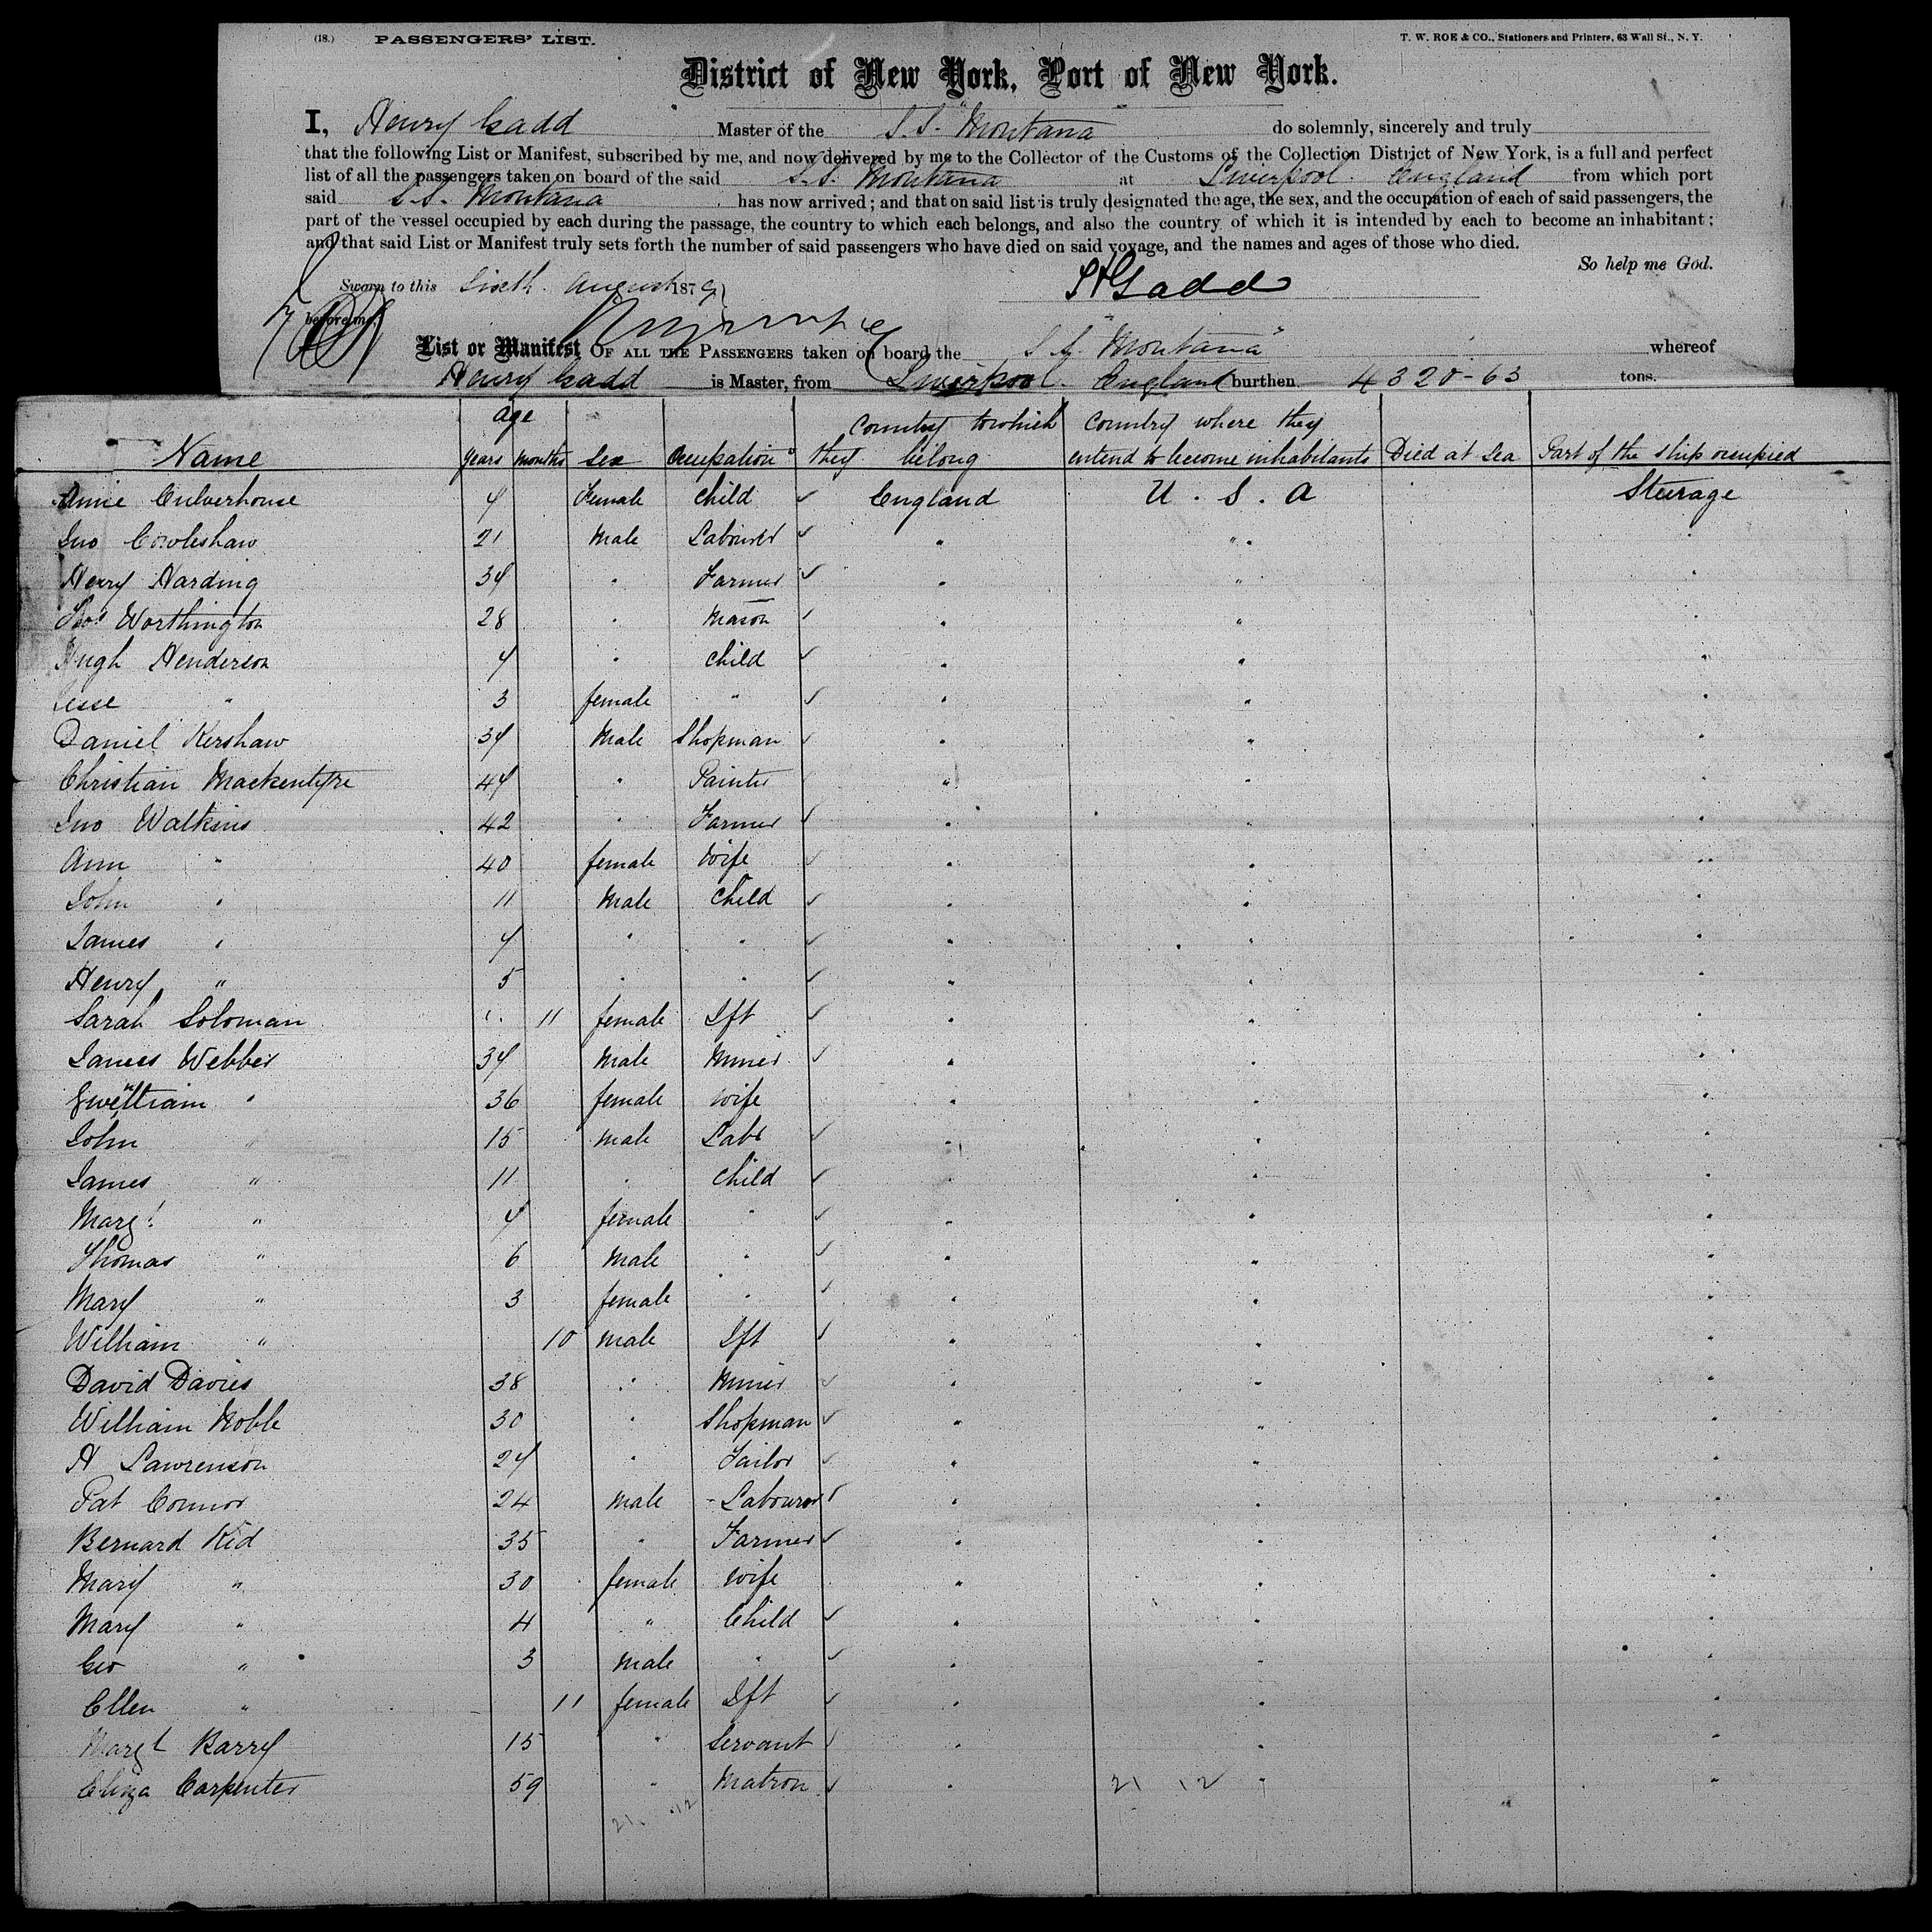 (18.) PASSENGERS' LIST. T. W. ROE & CO., Stationers and Printers, 63 Wall St., N. Y.
District of New York, Port of New York.
I, Henry Gadd Master of the S.S. "Montana" do solemnly, sincerely and truly
that the following List or Manifest, subscribed by me, and now delivered by me to the Collector of the Customs of the Collection District of New York, is a full and perfect
list of all the passengers taken on board of the said S.S. Montana at Liverpool. England from which port
said S.S. Montana has now arrived; and that on said list is truly designated the age, the sex, and the occupation of each of said passengers, the
part of the vessel occupied by each during the passage, the country to which each belongs, and also the country of which it is intended by each to become an inhabitant;
and that said List or Manifest truly sets forth the number of said passengers who have died on said voyage, and the names and ages of those who died.
So help me God.
Sworn to this Sixth August 1879 HGadd
before me,
List or Manifest OF ALL THE PASSENGERS taken on board the S.S. "Montana" whereof
Henry Gadd is Master, from Liverpool. England burthen 4320-63 tons.
Name age years months sex occupation country to which they belong country where they entend to become inhabitants Died at Sea Part of the ship occupied
Annie Culverhouse 7 Female child ✓ England U. S. A Steerage
Jno Cowleshaw 21 Male Labourer ✓ " " "
Henry Harding 34 " Farmer ✓ " " "
Thos Worthington 28 " Mason ✓ " " "
Hugh Henderson 7 " child ✓ " " "
Jesse " 3 female " ✓ " " "
Daniel Kershaw 34 Male Shopman ✓ " " "
Christian Mackentyre 44 " Painter " " "
Jno Watkins 42 " Farmer ✓ " " "
Ann " 40 female Wife ✓ " " "
John " 11 Male Child ✓ " " "
James " 7 " " ✓ " " "
Henry " 5 " " ✓ " " "
Sarah Soloman 11 female Ift ✓ " " "
James Webber 34 Male Miner ✓ " " "
" 36 female wife " " "
John " 15 male Labr ✓ " " "
James " 11 " Child ✓ " " "
Margt " 7 female " ✓ " " "
Thomas " 6 male " ✓ " " "
Mary " 3 female " ✓ " " "
William " 10 male Ift ✓ " " "
David Davies 38 " Miner ✓ " " "
William Noble 30 " Shopman ✓ " " "
H Lawrenson 24 " Tailor ✓ " " "
Pat Connor 24 male Labourer ✓ " " "
Bernard Kid 35 " Farmer ✓ " " "
Mary " 30 female wife " " "
Mary " 4 " Child ✓ " " "
Geo " 3 male " ✓ " " "
Ellen " 11 female Ift ✓ " " "
Margt Barry 15 " Servant ✓ " " "
Eliza Carpenter 59 " Matron ✓ " 21 12 " "
21 12